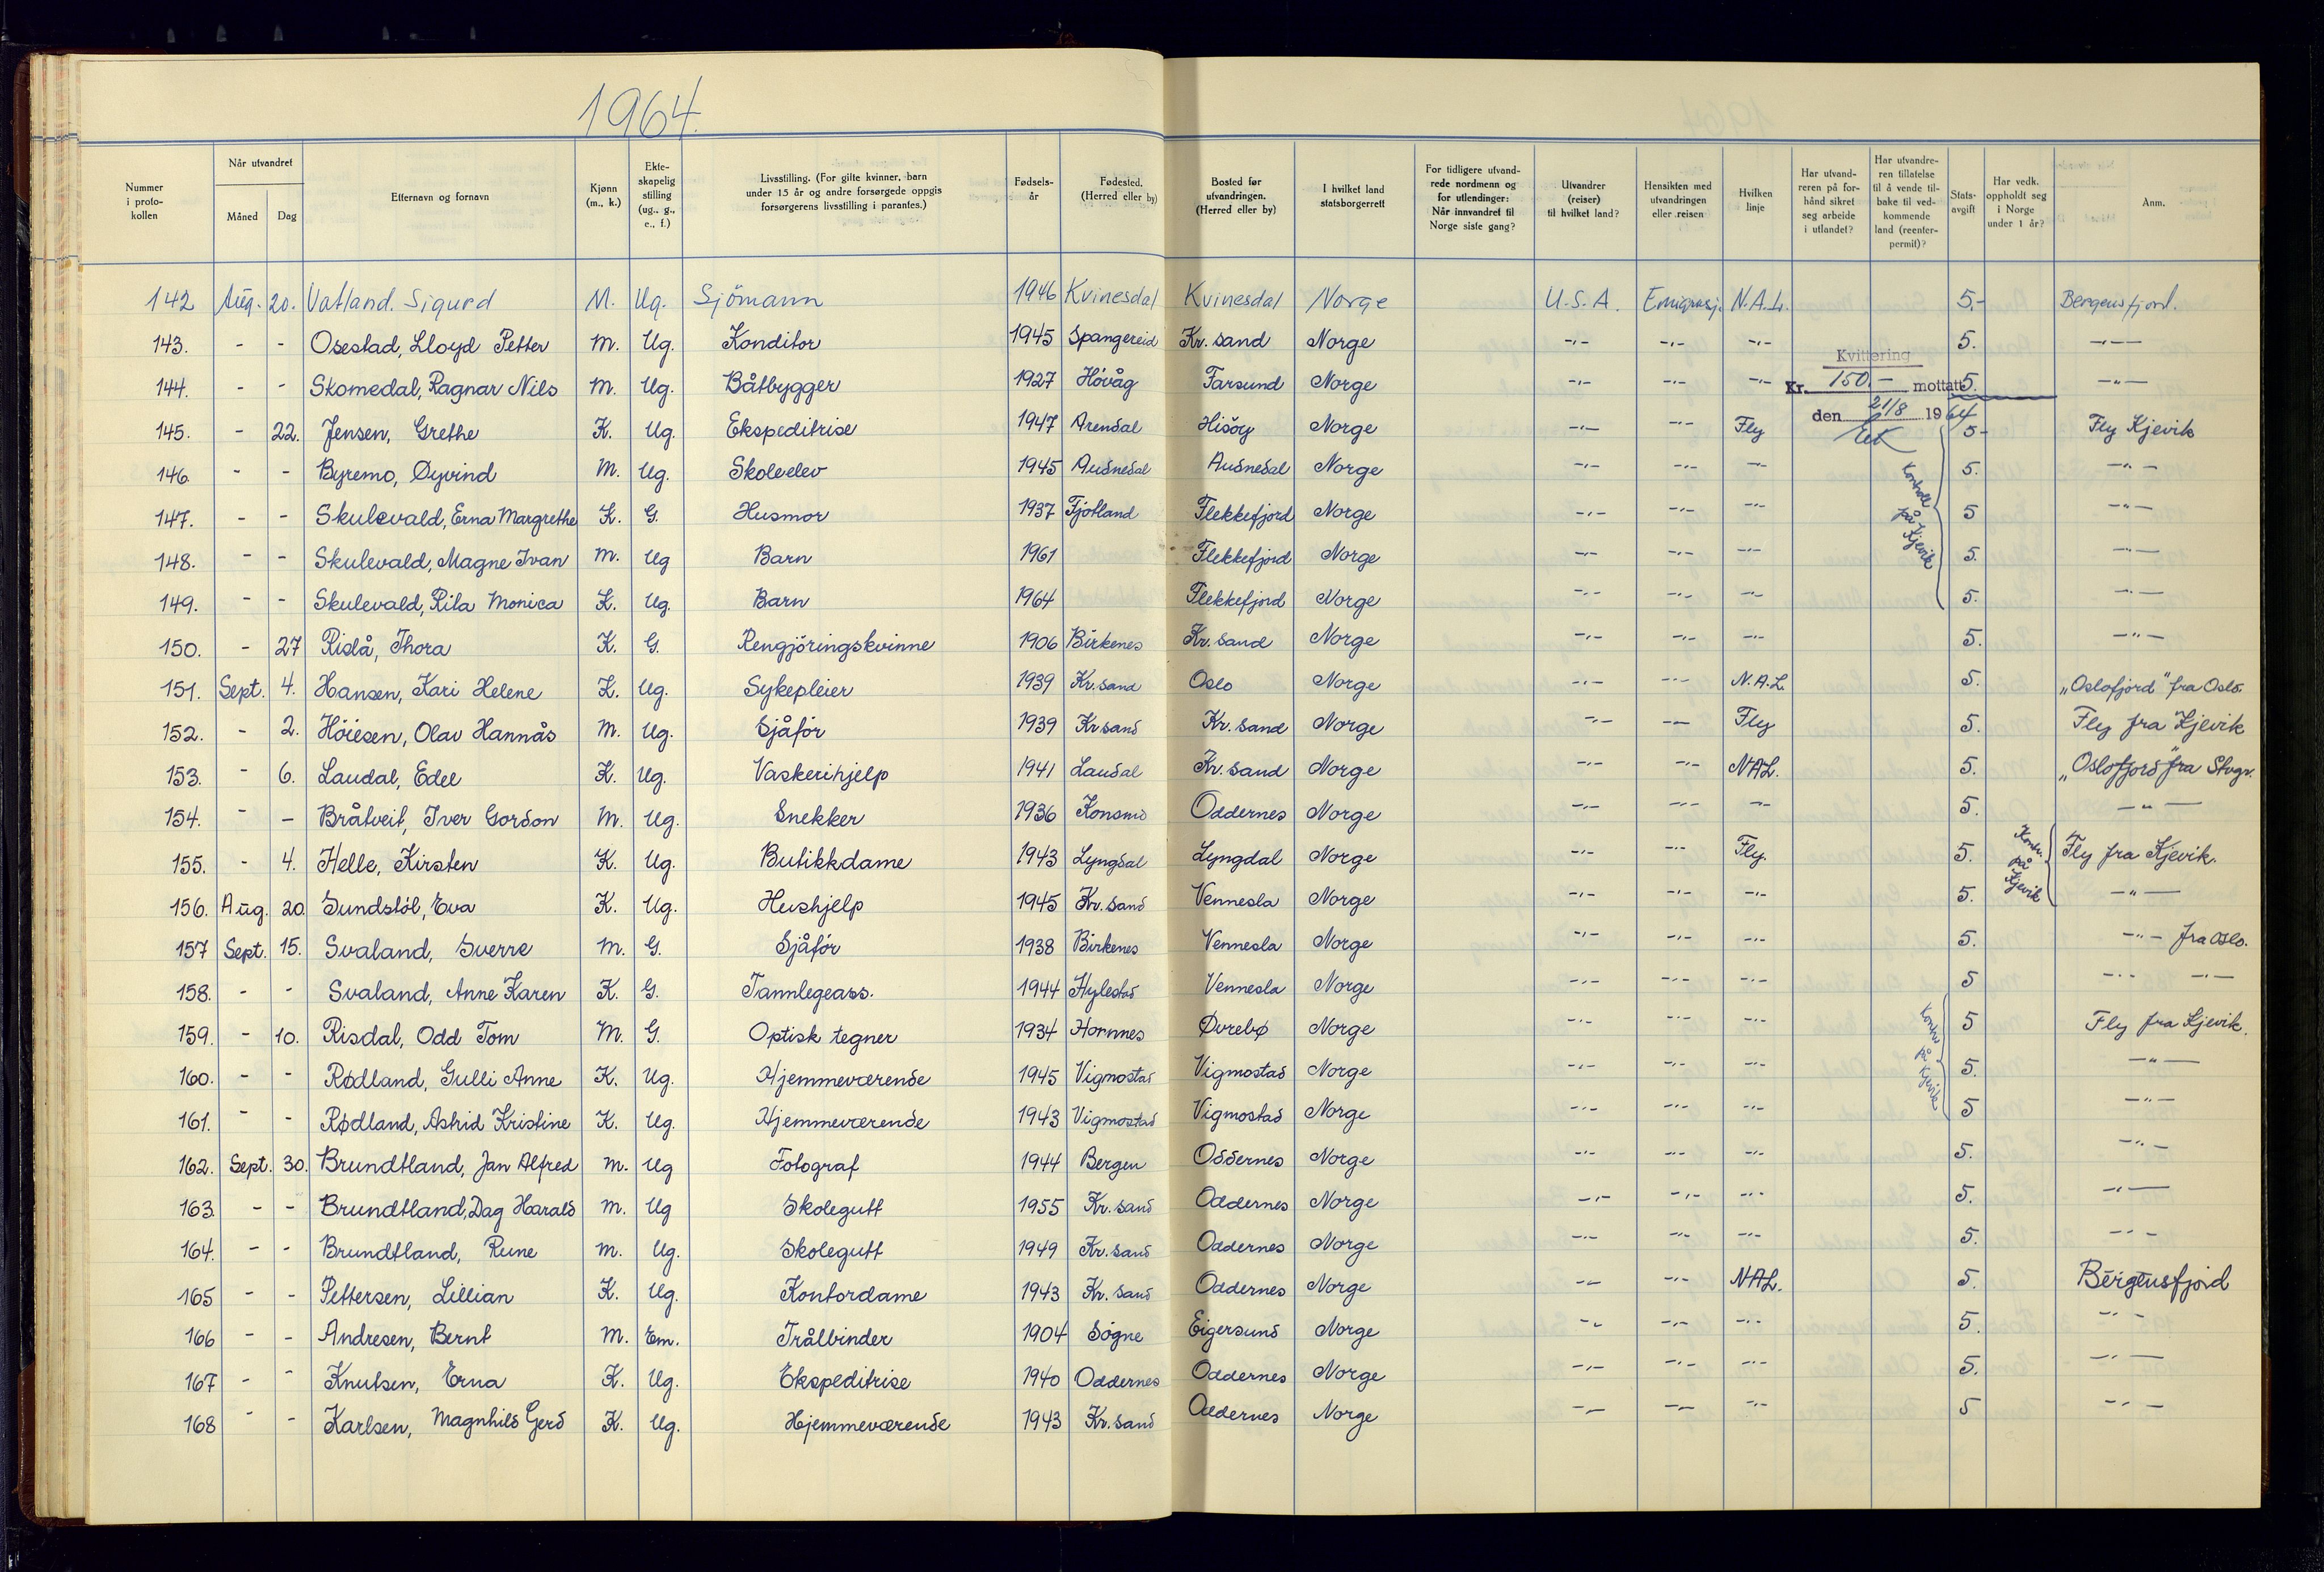 1964.
Nummer i proto-kollen | Når utvandret Måned Dag | Etternavn og fornavn | Kjønn (m., k.) | Ekte-skapelig stilling (ug., g., e., f.) | Livsstilling. (For gifte kvinner, barn under 15 år og andre forsørgede oppgis forsørgerens livsstilling i parantes.) | Fødsels-år | Fødested. (Herred eller by) | Bosted før utvandringen. (Herred eller by) | I hvilket land statsborgerrett | For tidligere utvand-rede nordmenn og for utlendinger: Når innvandret til Norge siste gang? | Utvandrer (reiser) til hvilket land? | Hensikten med utvandringen eller reisen | Hvilken linje | Har utvand-reren på for-hånd sikret seg arbeide i utlandet? | Har utvandre-ren tillatelse til å vende til-bake til ved-kommende land (reenter-permit)? | Stats-avgift | Har vedk. oppholdt seg i Norge under 1 år? | Anm.
142 Aug. 20. Vatland. Sigurd M. Ug. Sjömann 1946 Kvinesdal Kvinesdal Norge U.S.A. Emigrasj. N.A.L. 5.- Bergensfjord.
143. - - Osestad, Lloyd Petter M. Ug. Konditor 1945 Spangereid Kr. sand Norge -"- -"- -"- 5. -"-
Kvittering
144. - - Skomedal, Ragnar Nils M. Ug. Båtbygger 1927 Hövåg Farsund Norge -"- -"- -"- Kr. 150.- mottatt 5. -"-
den 21/8 1964
145. - 22. Jensen, Grethe K. Ug. Ekspeditrise 1947 Arendal Hisöy Norge -"- -"- Fly 5- Fly Kjevik
146. - - Byremo, Øyvind M. Ug. Skoleelev 1945 Audnedal Audnedal Norge -"- -"- -"- 5. -"-
Kontroll på Kjevik
147. - - Skulevald, Erna Margrethe K. G. Husmor 1937 Fjotland Flekkefjord Norge -"- -"- -"- 5 -"-
148. - - Skulevald, Magne Ivan M. Ug Barn 1961 Flekkefjord Norge -"- -"- -"- 5. -"-
149. - - Skulevald, Rita Monica K. Ug. Barn 1964 Flekkefjord Norge -"- -"- -"- 5. -"-
150. - 27 Rislå, Thora K. G. Rengjöringskvinne 1906 Birkenes Kr. sand Norge -"- -"- -"- 5. -"-
151. Sept. 4. Hansen, Kari Helene K. Ug. Sykepleier 1939 Kr. sand Oslo Norge -"- -"- N.A.L. 5. "Oslofjord" fra Oslo.
152. - 2. Höiesen, Olav Hannås M. Ug. Sjåför 1939 Kr sand Kr. sand Norge -"- -"- Fly 5. Fly fra Kjevik
153. - 6. Laudal, Edel K. Ug. Vaskerihjelp 1941 Laudal Kr. sand Norge -"- -"- NAL. 5. "Oslofjord" fra Stvgr.
154. - - Bråtveit, Iver Gordon M. Ug. Snekker 1936 Konsmo Oddernes Norge -"- -"- -"- 5. -"-
155. - 4. Helle, Kirsten K. Ug. Butikkdame 1943 Lyngdal Lyngdal Norge -"- -"- Fly. 5. Kontr. på Kjevik Fly fra Kjevik.
156. Aug. 20. Sundstöl, Eva K. Ug. Hushjelp 1945 Kr. sand Vennesla Norge -"- -"- -"- 5. -"-
157 Sept. 15. Svaland, Sverre M. G. Sjåför 1938 Birkenes Vennesla Norge -"- -"- -"- 5. -"- fra Oslo.
158. - - Svaland, Anne Karen K. G. Tannlegeass. 1944 Hylestad Vennesla Norge -"- -"- -"- 5 -"- -"-
159. - 10. Risdal, Odd Tom M. G. Optisk tegner 1934 Hornnes Øvrebø Norge -"- -"- -"- 5 Fly fra Kjevik.
160. - - Rødland, Gulli Anne K. Ug. Hjemmeværende 1945 Vigmostad Vigmostad Norge -"- -"- -"- 5. -"-
161. - - Rødland, Astrid Kristine K. Ug. Hjemmeværende 1943 Vigmostad Vigmostad Norge -"- -"- -"- 5 -"-
162. Sept. 30. Brundtland, Jan Alfred M. Ug Fotograf 1944 Bergen Oddernes Norge -"- -"- -"- 5. -"-
163. - - Brundtland, Dag Harald M. Ug Skolegutt 1955 Kr. sand Oddernes Norge -"- -"- -"- 5. -"-
164. - - Brundtland, Rune M. Ug. Skolegutt 1949 Kr. sand Oddernes Norge -"- -"- -"- 5. -"-
165 - - Pettersen, Lillian K. Ug. Kontordame 1943 Kr. sand Oddernes Norge -"- -"- NAL. 5. Bergensfjord
166 - - Andresen, Bernt M. Em. Trålbinder 1904 Sögne Eigersund Norge -"- -"- -"- 5. -"-
167 - - Knutsen, Erna K. Ug. Ekspeditrise 1940 Oddernes Oddernes Norge -"- -"- -"- 5. -"-
168 - - Karlsen, Magnhild Gerd K. Ug. Hjemmeværende 1943 Kr. sand Oddernes Norge -"- -"- -"- 5 -"-